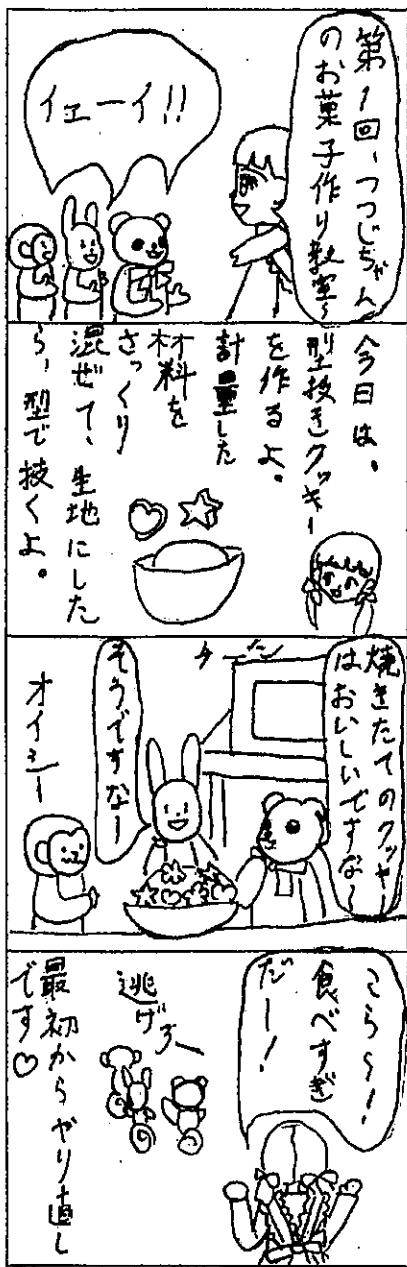 第1回、つつじちゃん
のお菓子作り教室〜
イェーイ!!
今日は、
型抜きクッキー
を作るよ。
計量した
材料を
さっくり
混ぜて、生地にした
ら、型で抜くよ。
焼きたてのクッキー
はおいしいですな〜
そうですなー
オイシー
こら〜!
食べすぎ
だー!
逃げろ〜
最初からやり直し
です♡